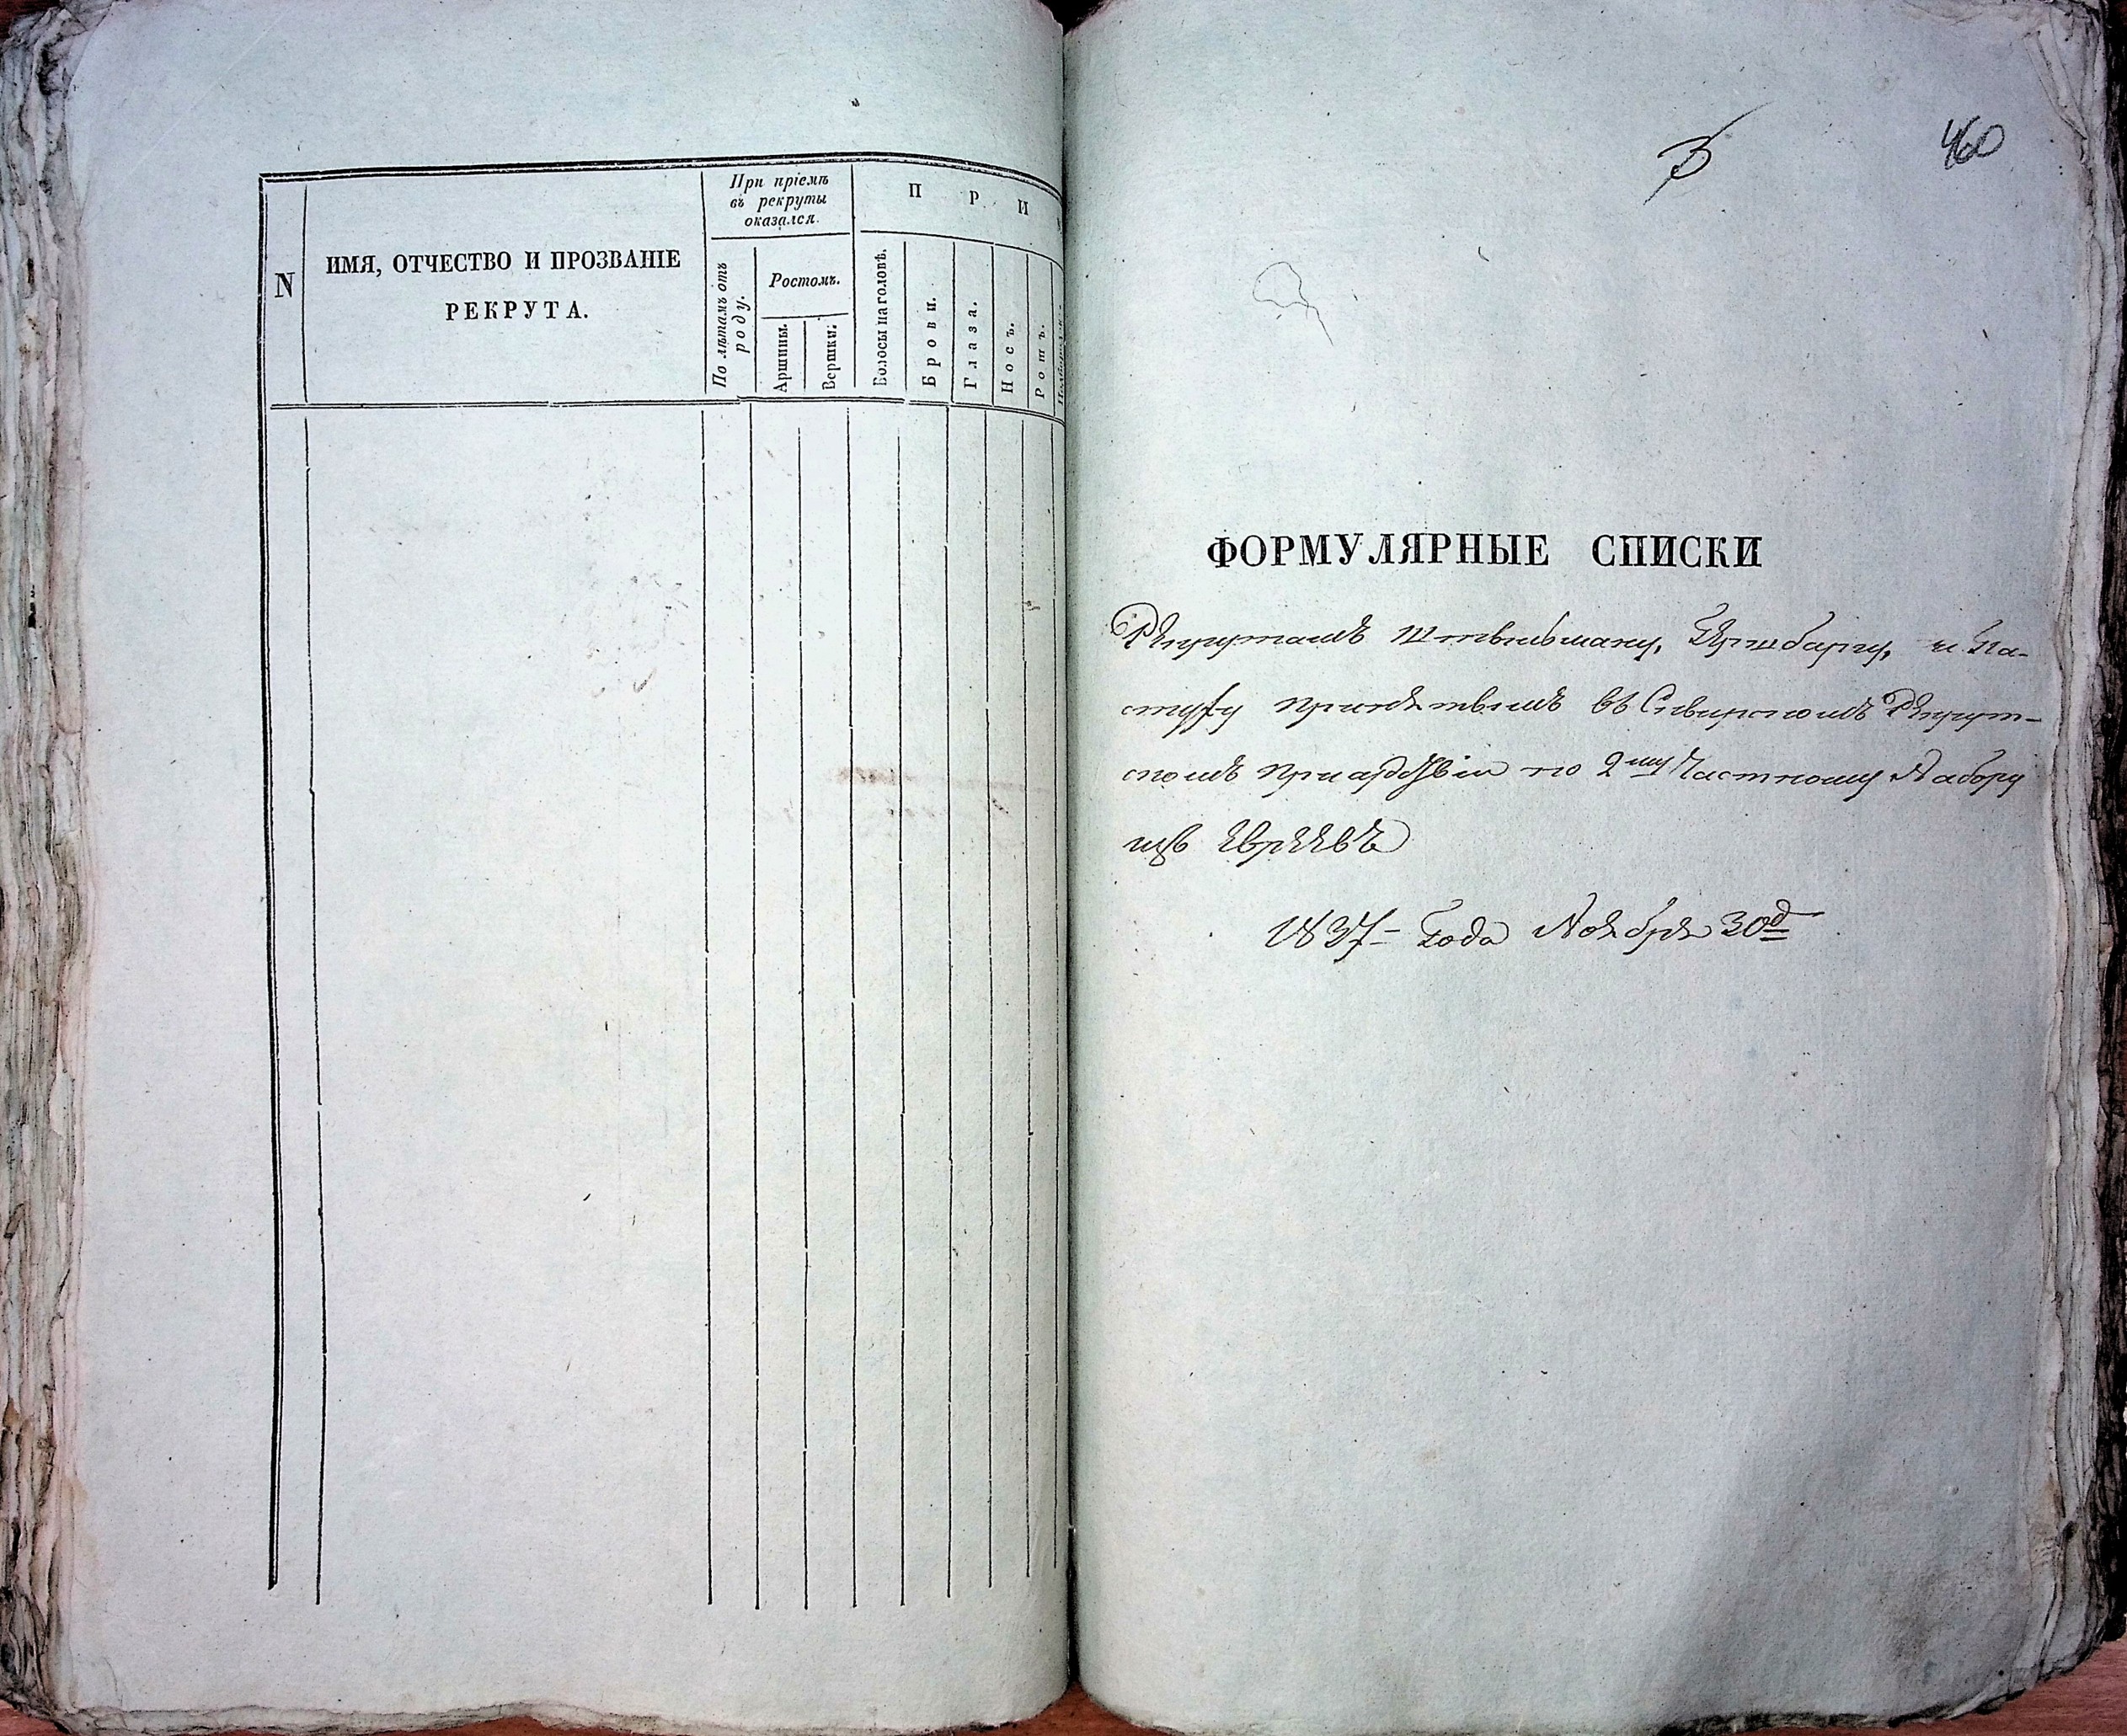 N
ИМЯ, ОТЧЕСТВО И ПРОЗВАНІЕ
РЕКРУТА.
При пріемѣ
въ рекруты
оказался.
По лѣтамъ отъ
роду.
Ростомъ.
Аршины.
Вершки.
П Р И
Волосы на головѣ.
Брови.
Глаза.
Носъ.
Ротъ.
460
ФОРМУЛЯРНЫЕ СПИСКИ
Рекрутамъ и Па-
стуху принятымъ въ Сквирскомъ Рекрут-
скомъ Присудствіи по 2му Частному Набору
изъ Евреевъ
1837 Года Ноября 30д